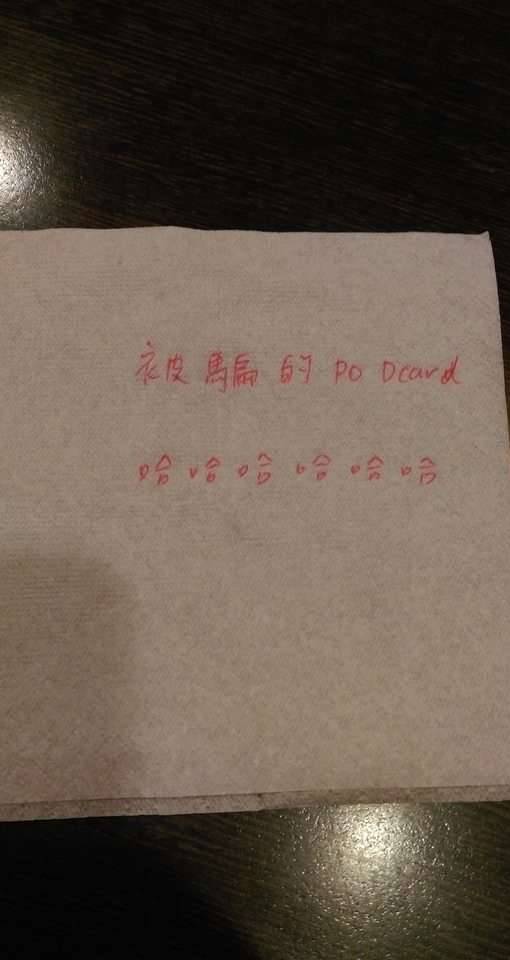 被騙的 PO Dcard
哈哈哈哈哈哈